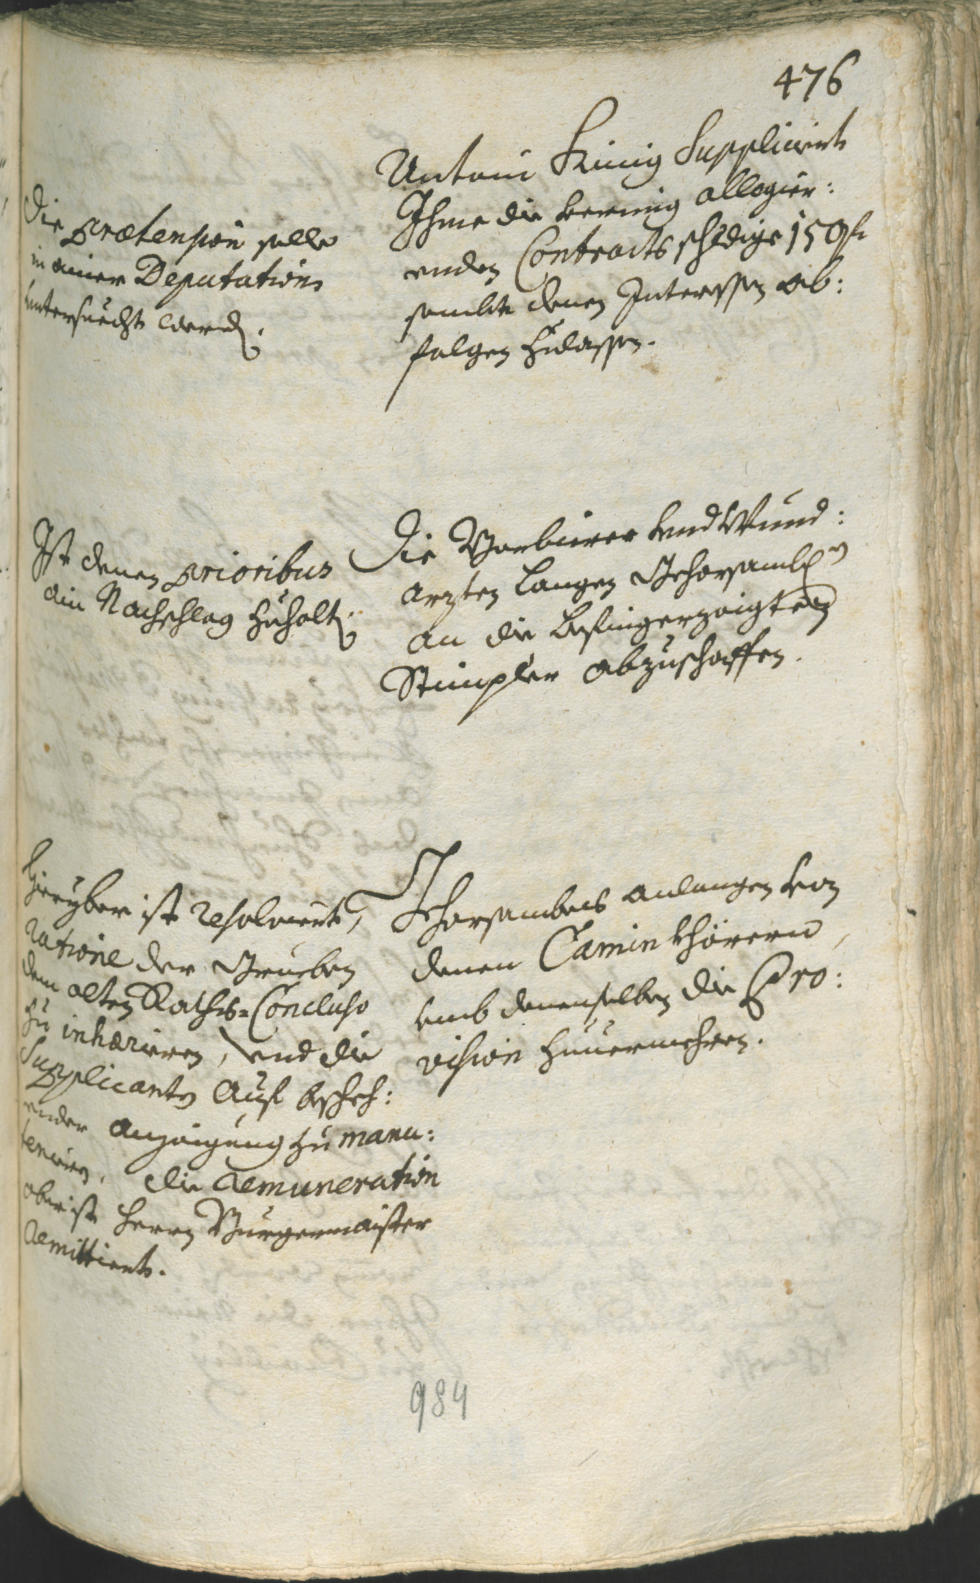 476
Die prætension solle
in einer Deputation
untersuecht werd.
Antoni König Supplicirt
Ihme die vermög allegir:
enden Contracts schuldige 150 fl
sambt denen Interessen ab:
folgen zulassen.
Ist denen prioribus
ein Nachschlag zuhalt.
Die Barbierer und Wund:
arzten langen Gehorsambl.
an die
Stimpler abzuschaffen.
Hierüber ist resolvirt,
ratione der Grueben
dem alten Raths-Concluso
zu inhæriren, und die
Supplicanten auf besche:
ender Anzeigung zu manu:
teniren, die Remuneration
aber ist herrn Burgermaister
Remittiert.
Gehorsambes anlangen von
denen Camin khörern,
umb denenselben die Pro:
vision zuuermehren.
984